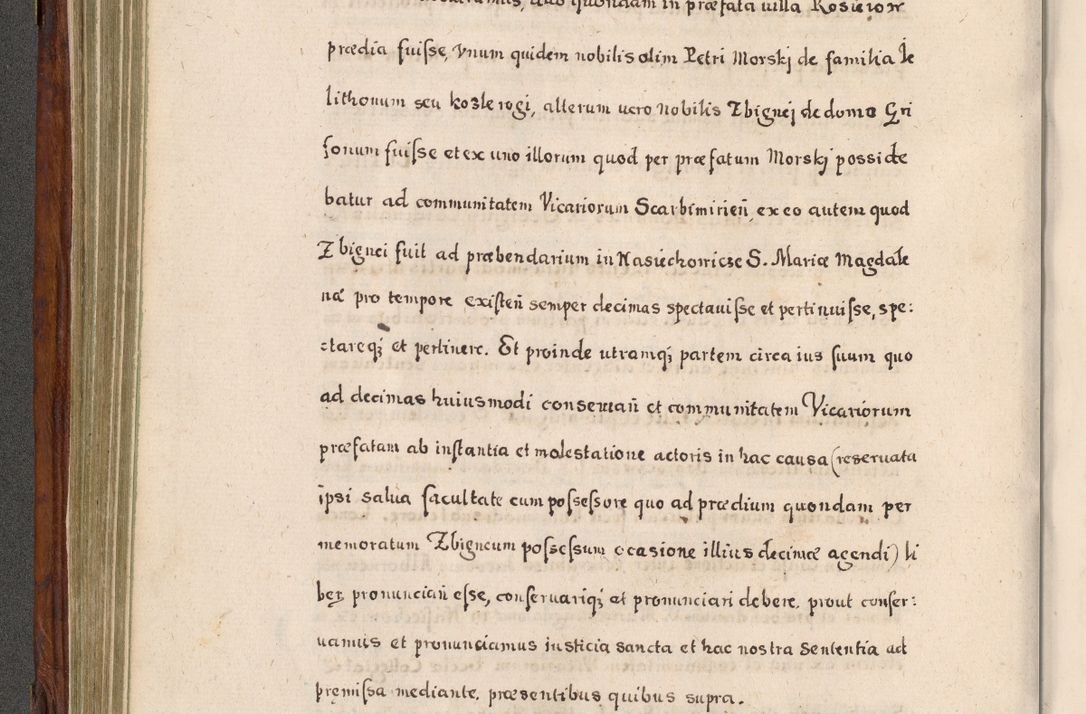 quondam in præfata uilla Rosieiow
prædia fuiſse, Vnum quidem nobilis olim Petri Morskj de familia Ie
lithonum seu kozlerogi, alterum uero nobilis Zbignej de domo Gri
ſonum fuiſse et ex uno illorum quod per præfatum Morskj posside
batur ad communitatem Vicariorum Scarbimirień, ex eo autem quod
Zbignei fuit ad præbendarium in Nasiechowicze S. Mariæ Magdale
næ pro tempore exiſteń semper decimas spectauiſse et pertinuiſse, spe:
ctareq; et pertinere. Et proinde utramq; partem circa ius ſuum quo
ad decimas huiusmodi conseruań et communitatem Vicariorum
præfatam ab inſtantia et molestatione actoris in hac causa (reservata
ipsi salua facultate cum poſseſsore quo ad prædium quondam per
memoratum Zbigneum poſseſsum occasione illius decimæ agendi) li
beȝ pronunciań eſse, conſeruariq; et pronunciari debere. prout conſer:
uamus et pronunciamus iusticia sancta et hac nostra sententia ad
premiſsa mediante, præsentibus quibus supra.